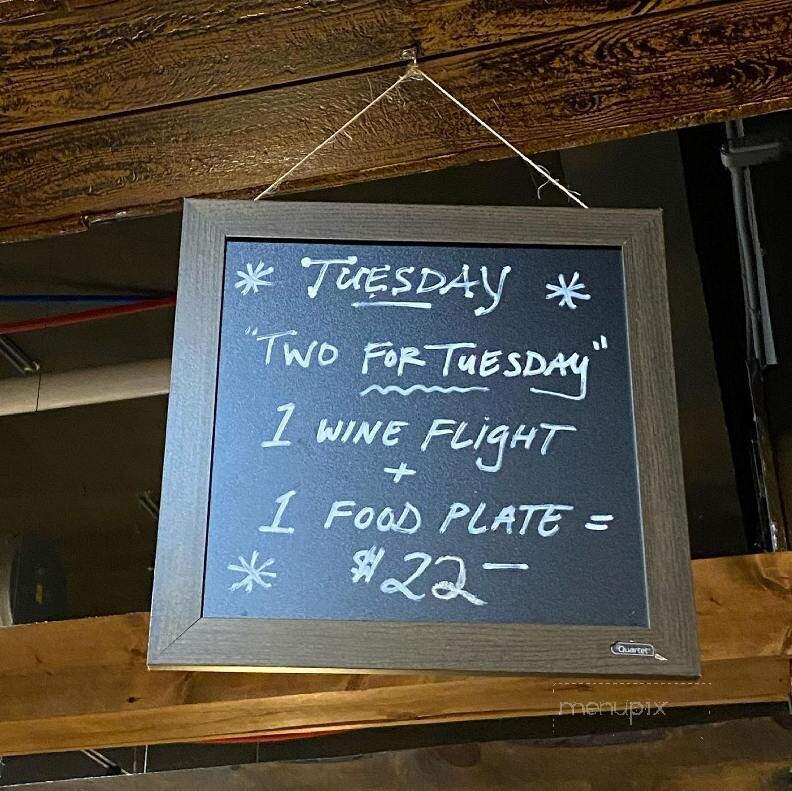 * TUESDAY *
"TWO FOR TUESDAY"
1 WINE FLIGHT
+
1 FOOD PLATE =
* $22—
Quartet
menupix